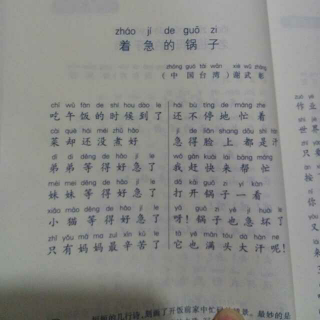 zháo jí de guō zi
着急的锅子
zhōng guó tái wān xiè wǔ zhāng
(中国台湾)谢武彰
chī wǔ fàn de shí hou dào le
吃午饭的时候到了
cài què hái méi zhǔ hǎo
菜却还没煮好
dì di děng de hǎo jí le
弟弟等得好急了
mèi mei děng de hǎo jí le
妹妹等得好急了
xiǎo māo děng de hǎo jí le
小猫等得好急了
zhǐ yǒu mā ma zuì xīn kǔ le
只有妈妈最辛苦了
hái bù tíng de máng zhe
还不停地忙着
jí de liǎn shang dōu shì hàn
急得脸上都是汗
wǒ gǎn kuài lái bāng máng
我赶快来帮忙
dǎ kāi guō zi yí kàn
打开锅子一看
yā guō zi yě jí huài le
呀!锅子也急坏了
它也满头大汗呢!